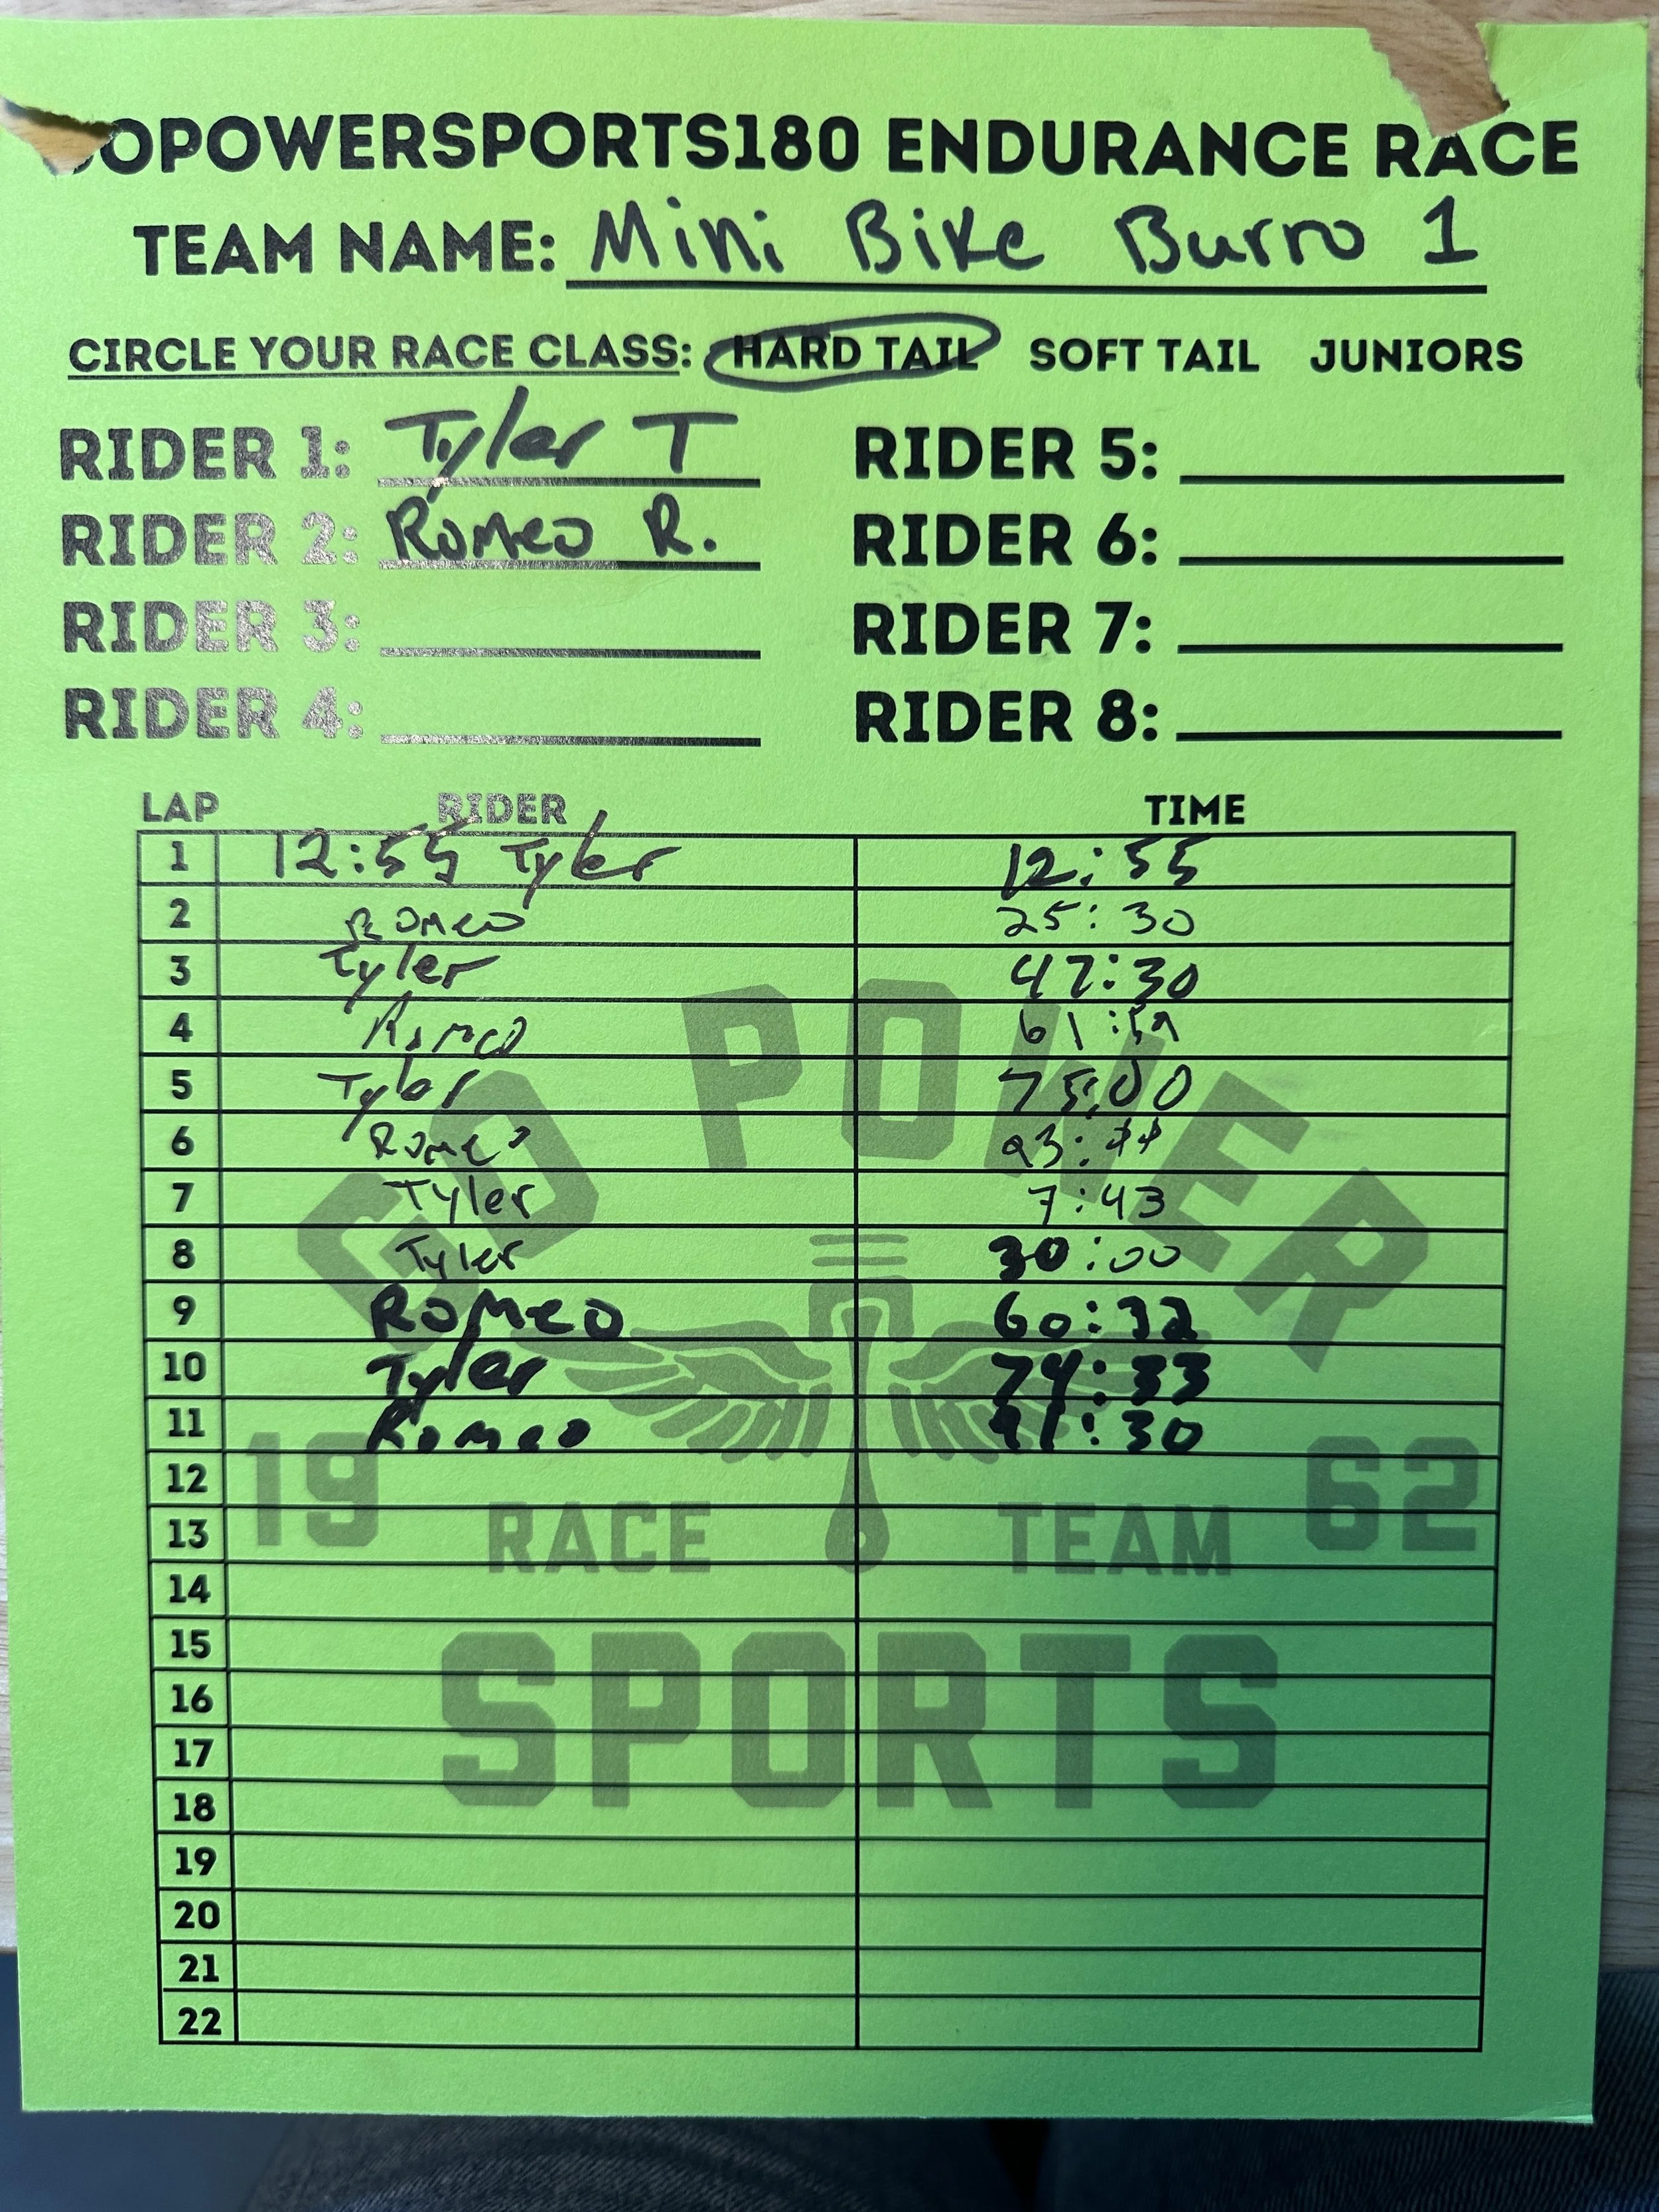 OPOWERSPORTS180 ENDURANCE RACE
TEAM NAME: Mini Bike Burro 1
CIRCLE YOUR RACE CLASS: HARD TAIL SOFT TAIL JUNIORS
RIDER 1: Tyler T RIDER 5:
RIDER 2: Romeo R. RIDER 6:
RIDER 3: RIDER 7:
RIDER 4: RIDER 8:
LAP RIDER TIME
1 12:55 Tyler 12:55
2 Romeo 25:30
3 Tyler 47:30
4 Romeo
5 Tyler 75:00
6 Romeo
7 Tyler 7:43
8 Tyler 30:00
9 Romeo 60:32
10 Tyler 74:33
11 Romeo 91:30
12
13
14
15
16
17
18
19
20
21
22
GO POWER
19 62
RACE TEAM
SPORTS